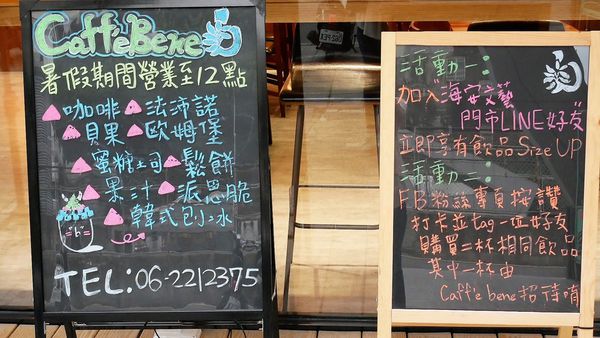 Caffe Bene
暑假期間營業至12點
咖啡 法沛諾
貝果 歐姆堡
蜜糖土司 鬆餅
果汁 派思脆
韓式刨冰
TEL:06-2212375
活動一:
加入"海安文藝
門市LINE好友"
立即享有飲品Size UP
活動二:
FB粉絲專頁按讚
打卡並tag一位好友
購買二杯相同飲品
其中一杯由
Caffe bene招待唷